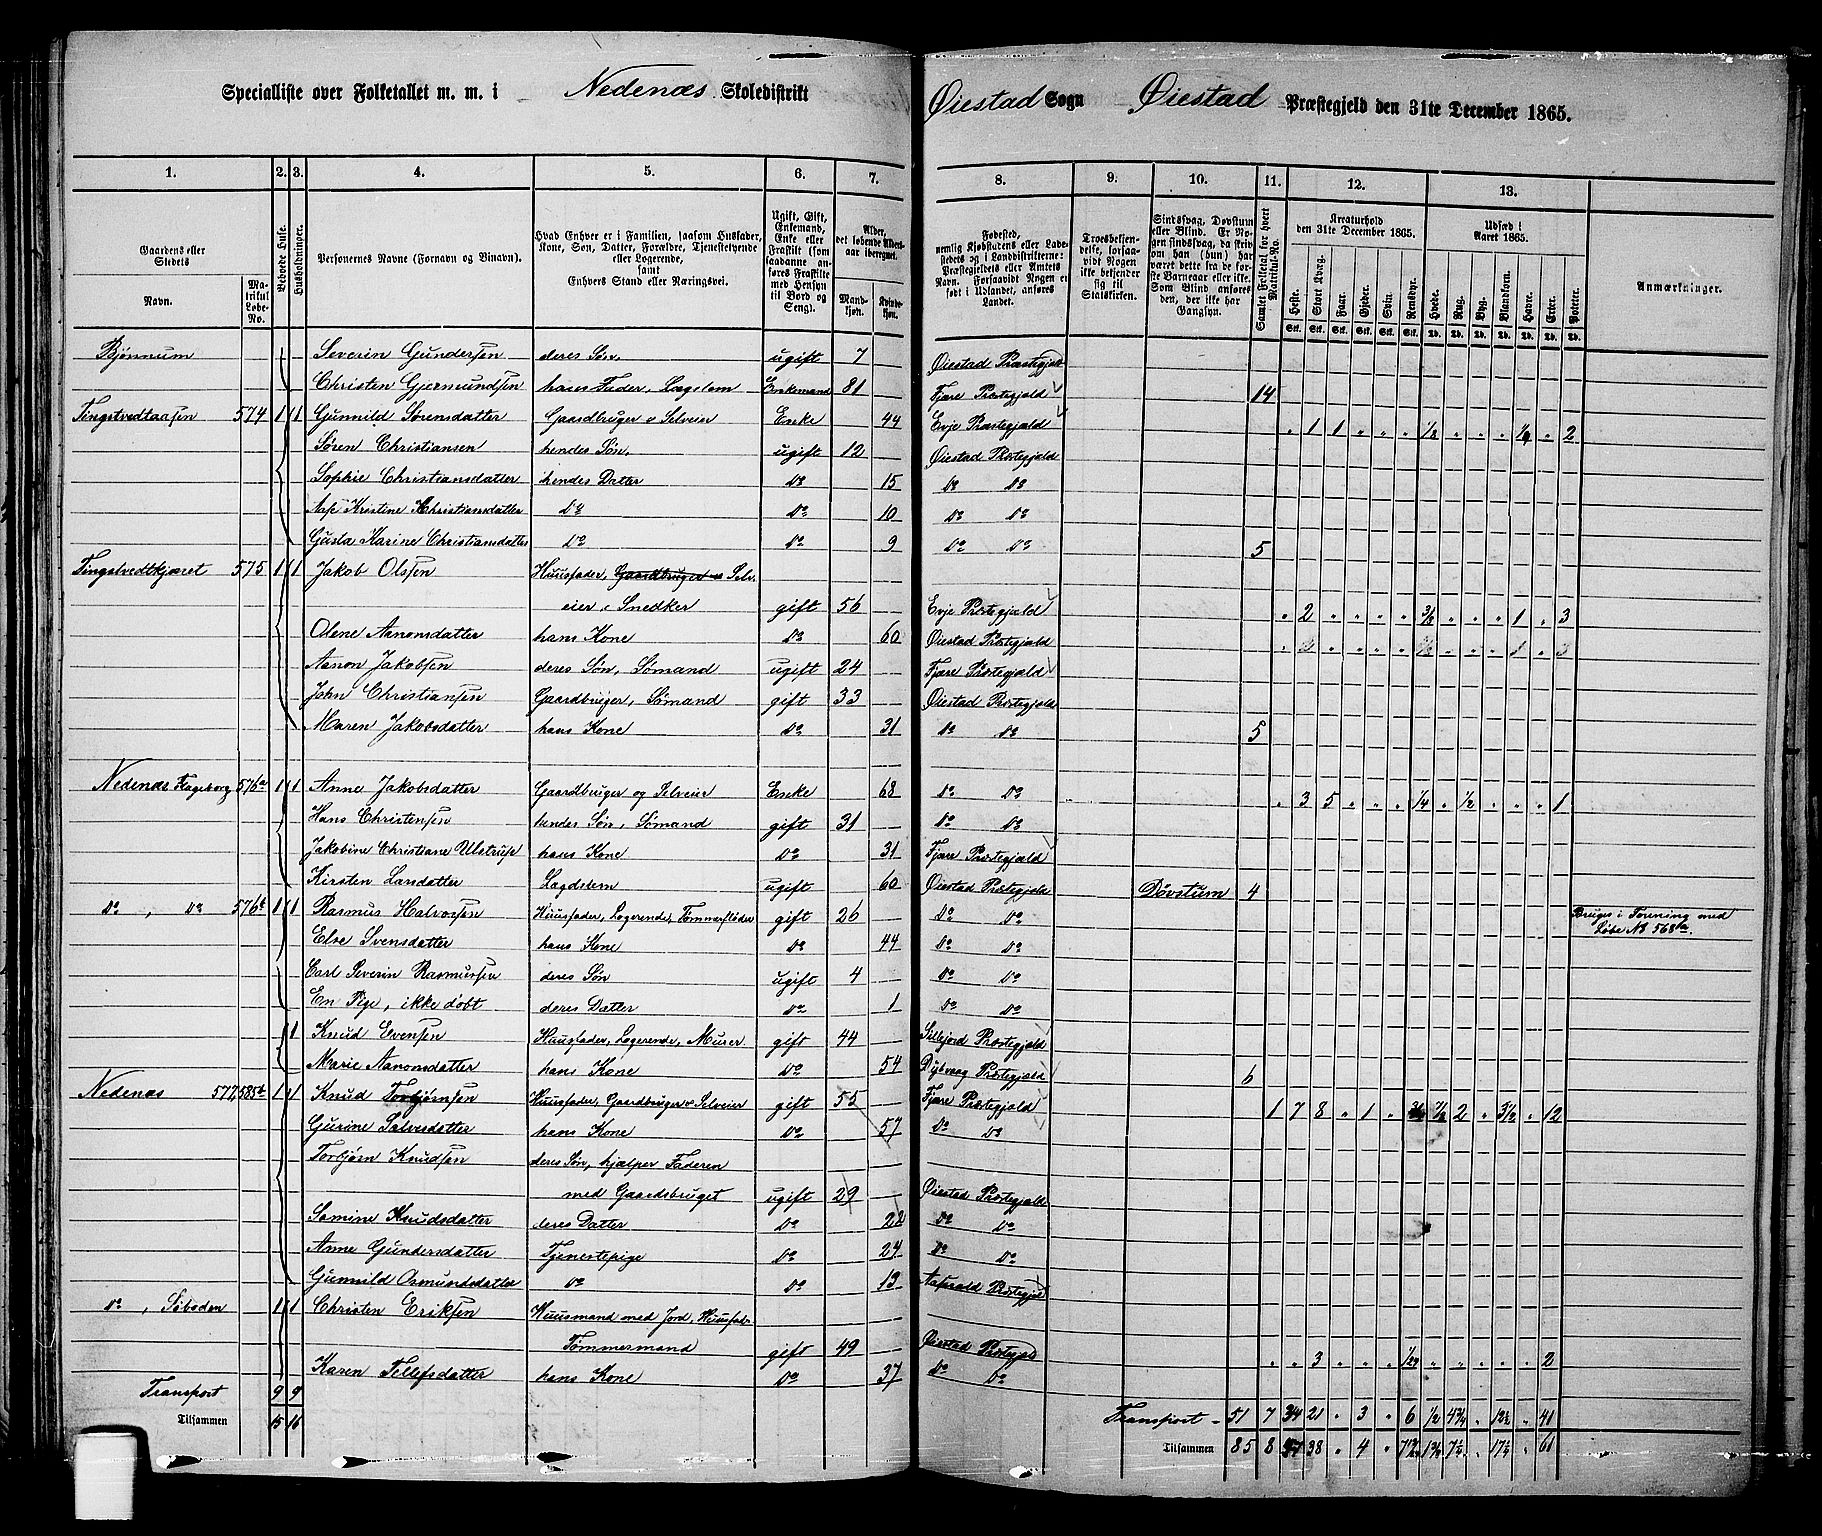 Specialliste over Folketallet m. m. i Nedenæs Skoledistrikt
Øiestad Sogn Øiestad Præstegjeld den 31te December 1865.
1. 2. 3. 4. 5. 6. 7. 8. 9. 10. 11. 12. 13.
Gaardens eller Stedets
Navn.
Matrikul Løbe-No.
Beboede Huse.
Husholdninger.
Personernes Navne (Fornavn og Tilnavn).
Hvad Enhver er i Familien, saasom Husfader, Kone, Søn, Datter, Forældre, Tjenestetyende eller Logerende, samt Enhvers Stand eller Næringsvei.
Ugift, Gift, Enkemand, Enke eller Fraskilt (som saadanne anføres Fraskilte med Hensyn til Bord og Seng).
Alder, det løbende Aldersaar iberegnet.
Mandkjøn. Kvindekjøn.
Fødested, nemlig Kjøbstadens eller Ladestedets og i Landdistrikterne: Præstegjeldets eller Amtets Navn. Forsaavidt Nogen er født i Udlandet, anføres Landet.
Troesbekjendelse, forsaavidt Nogen ikke bekjender sig til Statskirken.
Sindssvag, Døvstum eller Blind. Er Nogen sindssvag, da skrives om han (hun) har været dette fra de første Barneaar eller ikke. Som Blind anføres den, der ikke har Gangsyn.
Samlet Folketal for hvert Matrikul-No.
Kreaturhold den 31te December 1865.
Heste. Stort Kvæg. Faar. Gjeder. Svin. Rensdyr.
Udsæd i Aaret 1865.
Hvede. Rug. Byg. Blandkorn. Havre. Erter. Poteter.
Anmærkninger.
Bjønnum Severin Gundersen deres Søn ugift 7 Øiestad Præstegjeld
Christen Gjermundsen hans Fader, Lægslem Enkemand 81 Fjære Præstegjeld 14
Tingstvedtaasen 574 1 1 Gunnild Sørensdatter Gaardbruger o Selveier Enke 44 Evje Præstegjæld " 1 1 " " " 1/8 " " " 1/2 " 2
Søren Christiansen hendes Søn ugift 12 Øiestad Præstegjæld
Sophie Christiansdatter hendes Datter Do 15 Do Do
Aase Kristine Christiansdatter Do Do 10 Do Do
Gusta Karine Christiansdatter Do Do 9 Do Do 5
Tingstvedtkjæret 575 1 1 Jakob Olsen Huusfader, Gaardbruger o Selv-
eier, Snedker gift 56 Evje Præstegjæld " 2 " " " " 3/8 " " " 1 " 3
Olene Aanonsdatter hans Kone Do 60 Øiestad Præstegjæld
Aanon Jakobsen deres Søn, Sømand ugift 24 Fjære Præstegjæld
John Christiansen Gaardbruger, Sømand gift 33 Øiestad Præstegjæld
Maren Jakobsdatter hans Kone Do 31 Do Do 5
Nedenæs Hageborg 576a 1 1 Anne Jakobsdatter Gaardbruger og Selveier Enke 68 Do Do " 3 5 " " " 1/4 " 1/2 " " " 1
Hans Christensen hendes Søn, Sømand gift 31 Do Do
Jakobine Christiane Ulstrup hans Kone Do 31 Fjære Præstegjæld
Kirsten Larsdatter Lægdslem ugift 60 Øiestad Præstegjæld Døvstum 4
Do, Do 576b 1 1 Rasmus Halvorsen Huusfader, Logerende, Tømmerfløder gift 26 Do Do Bruges i Forening med
Løbe No 568a.
Else Svensdatter hans Kone Do 44 Do Do
Carl Severin Rasmussen deres Søn ugift 4 Do Do
En Pige, ikke døbt deres Datter Do 1 Do Do
1 Knud Evensen Huusfader, Logerende, Murer gift 44 Sillejord Præstegjæld
Marie Aanonsdatter hans Kone Do 54 Dybvaag Præstegjæld 6
Nedenæs 577,585b 1 1 Knud Torbjørnsen Huusfader, Gaardbruger o Selveier gift 55 Fjære Præstegjæld 1 7 8 " 1 " 7/8 2 " 3 1/2 " 12
Gurine Salvesdatter hans Kone Do 57 Do Do
Torbjørn Knudsen deres Søn, hjælper Faderen
med Gaardsbruget ugift 29 Øiestad Præstegjæld
Samine Knudsdatter deres Datter Do 22 Do Do
Anne Gundersdatter Tjenestepige Do 24 Do Do
Gunnild Osmundsdatter Do Do 13 Præstegjæld
Do, Søboden 1 1 Christen Eriksen Huusmand med Jord, Huusfad.
Tømmermand gift 49 Øiestad Præstegjæld " " 3 " " " 1/24 " " " " " 2
Karen Tellefsdatter hans Kone Do 37 Do Do
Transport 9 9 Transport 51 7 34 21 " 3 " 6 1/2 4 3/4 " 12 1/2 " 41
Tilsammen 15 16 Tilsammen 85 8 38 " 4 " 17 1/2 " 61